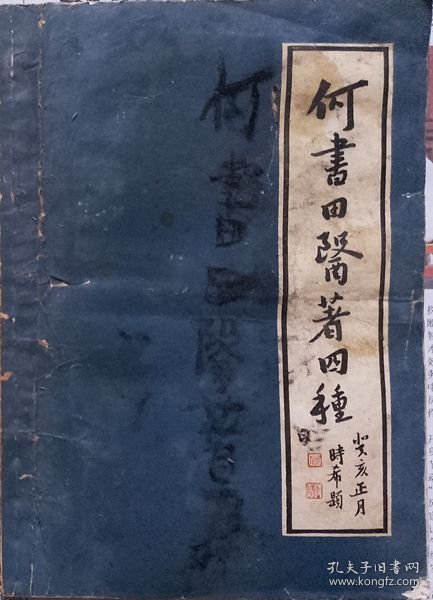 何書田醫著四種
癸亥正月
時希題
何書田醫著
孔夫子旧书网
www.kongfz.com